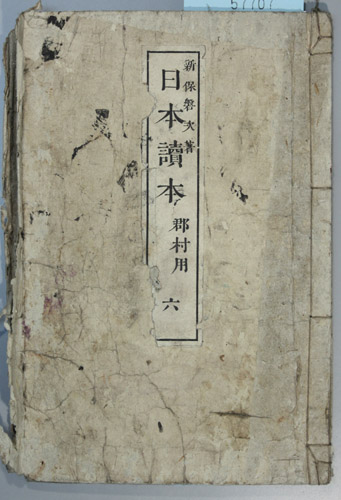 新保磐次著
日本讀本
郡村用
六